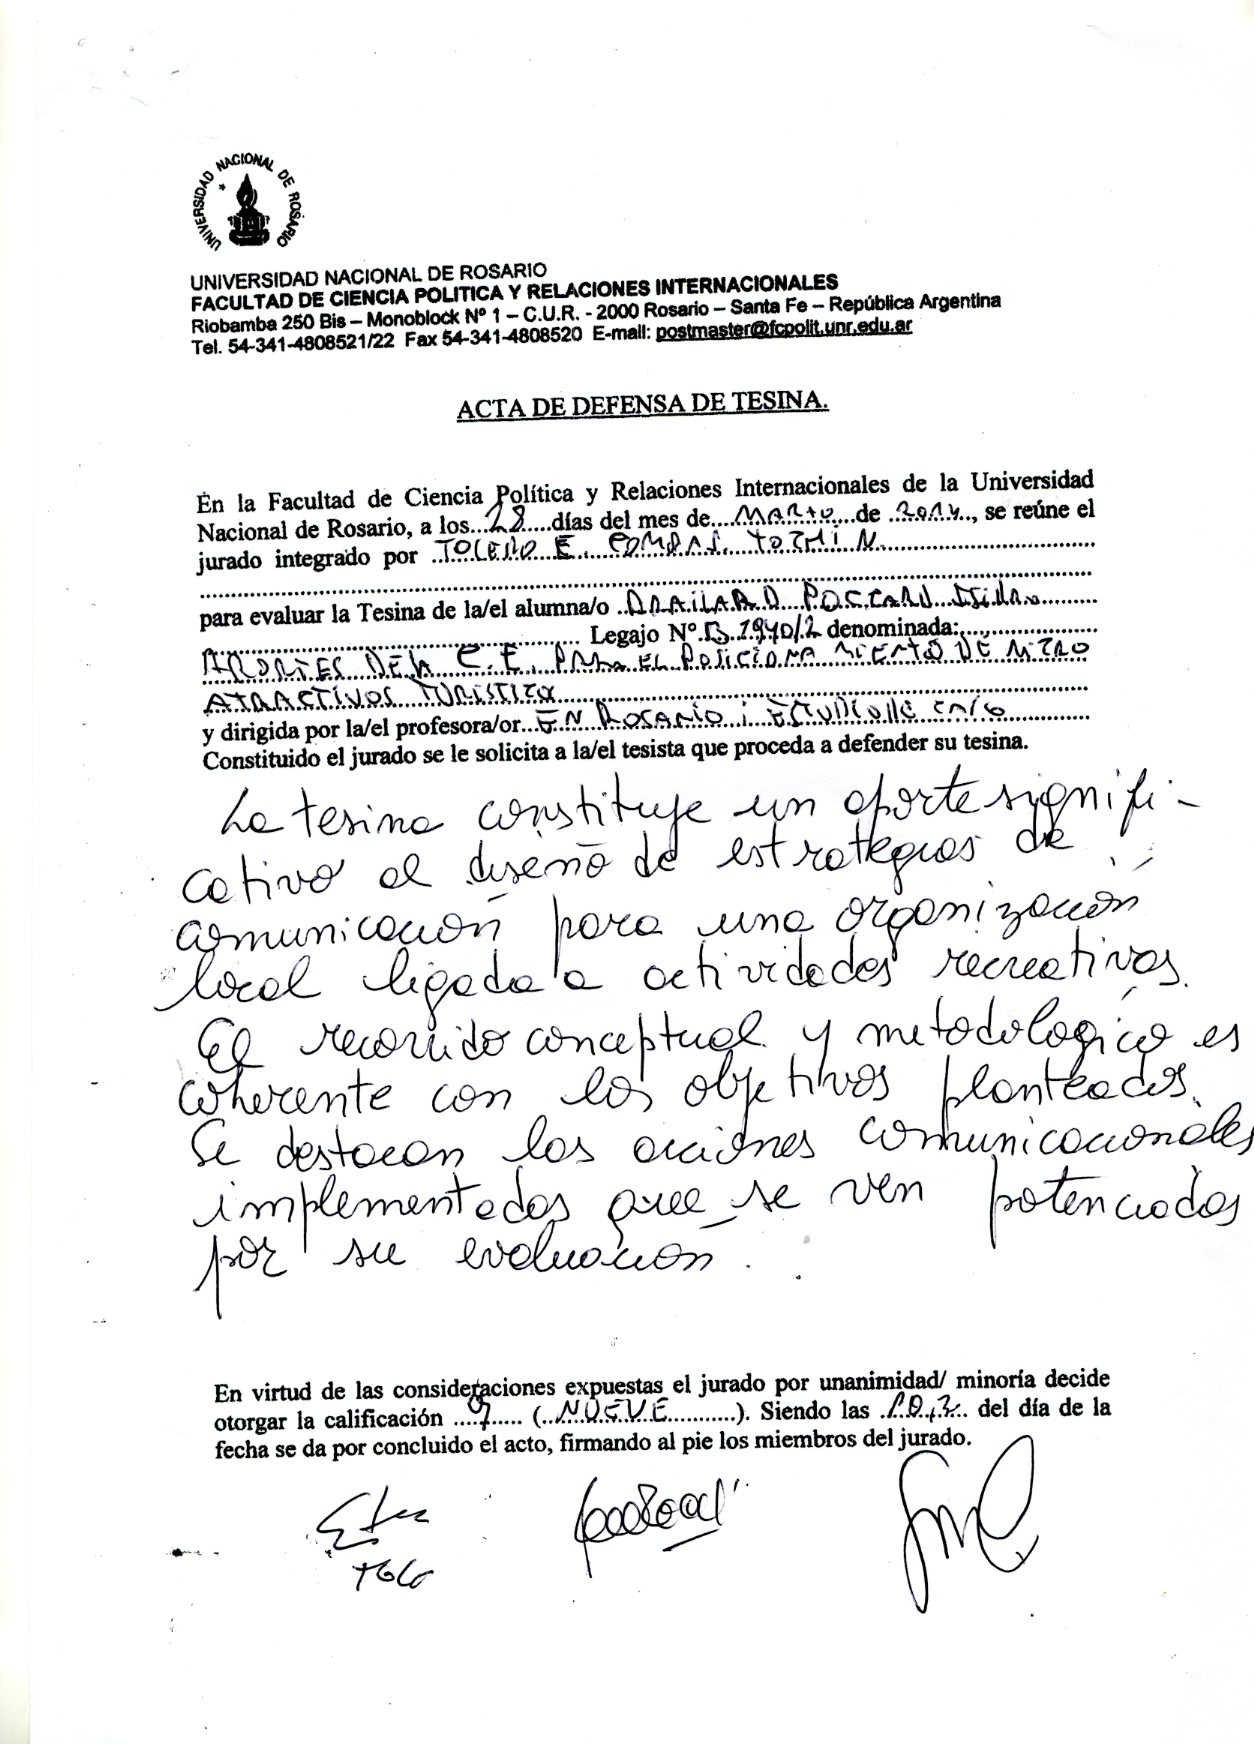 UNIVERSIDAD NACIONAL DE ROSARIO
UNIVERSIDAD NACIONAL DE ROSARIO
FACULTAD DE CIENCIA POLITICA Y RELACIONES INTERNACIONALES
Riobamba 250 Bis – Monoblock Nº 1 – C.U.R. - 2000 Rosario – Santa Fe – República Argentina
Tel. 54-341-4808521/22 Fax 54-341-4808520 E-mail: postmaster@fcpolit.unr.edu.ar
ACTA DE DEFENSA DE TESINA.
En la Facultad de Ciencia Política y Relaciones Internacionales de la Universidad
Nacional de Rosario, a los 28 días del mes de MARZO de 2014, se reúne el
jurado integrado por TOLEDO E.
para evaluar la Tesina de la/el alumna/o
Legajo Nº denominada:
APORTES DE LA C.E. PARA EL POSICIONAMIENTO DE
ATRACTIVOS TURISTICO
y dirigida por la/el profesora/or EN ROSARIO: ESTUDIO DE CASO
Constituido el jurado se le solicita a la/el tesista que proceda a defender su tesina.
La tesina constituye un aporte signifi-
cativo al diseño de estrategias de
comunicación para una organización
local ligada a actividades recreativas.
El recorrido conceptual y metodológico es
coherente con los objetivos planteados.
Se destacan las acciones comunicacionales
implementadas que se ven potenciadas
por su evaluación.
En virtud de las consideraciones expuestas el jurado por unanimidad/ minoría decide
otorgar la calificación 9 (NUEVE). Siendo las del día de la
fecha se da por concluido el acto, firmando al pie los miembros del jurado.